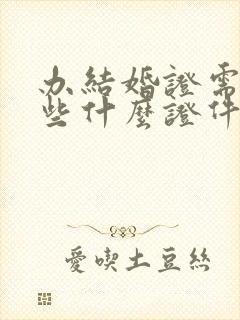 办結婚證需
些什麼證件
愛喫土豆絲